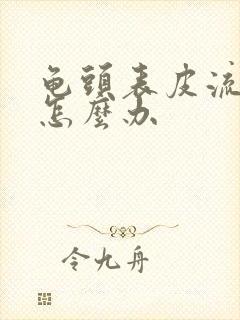 龟頭表皮流
怎麼办
令九舟